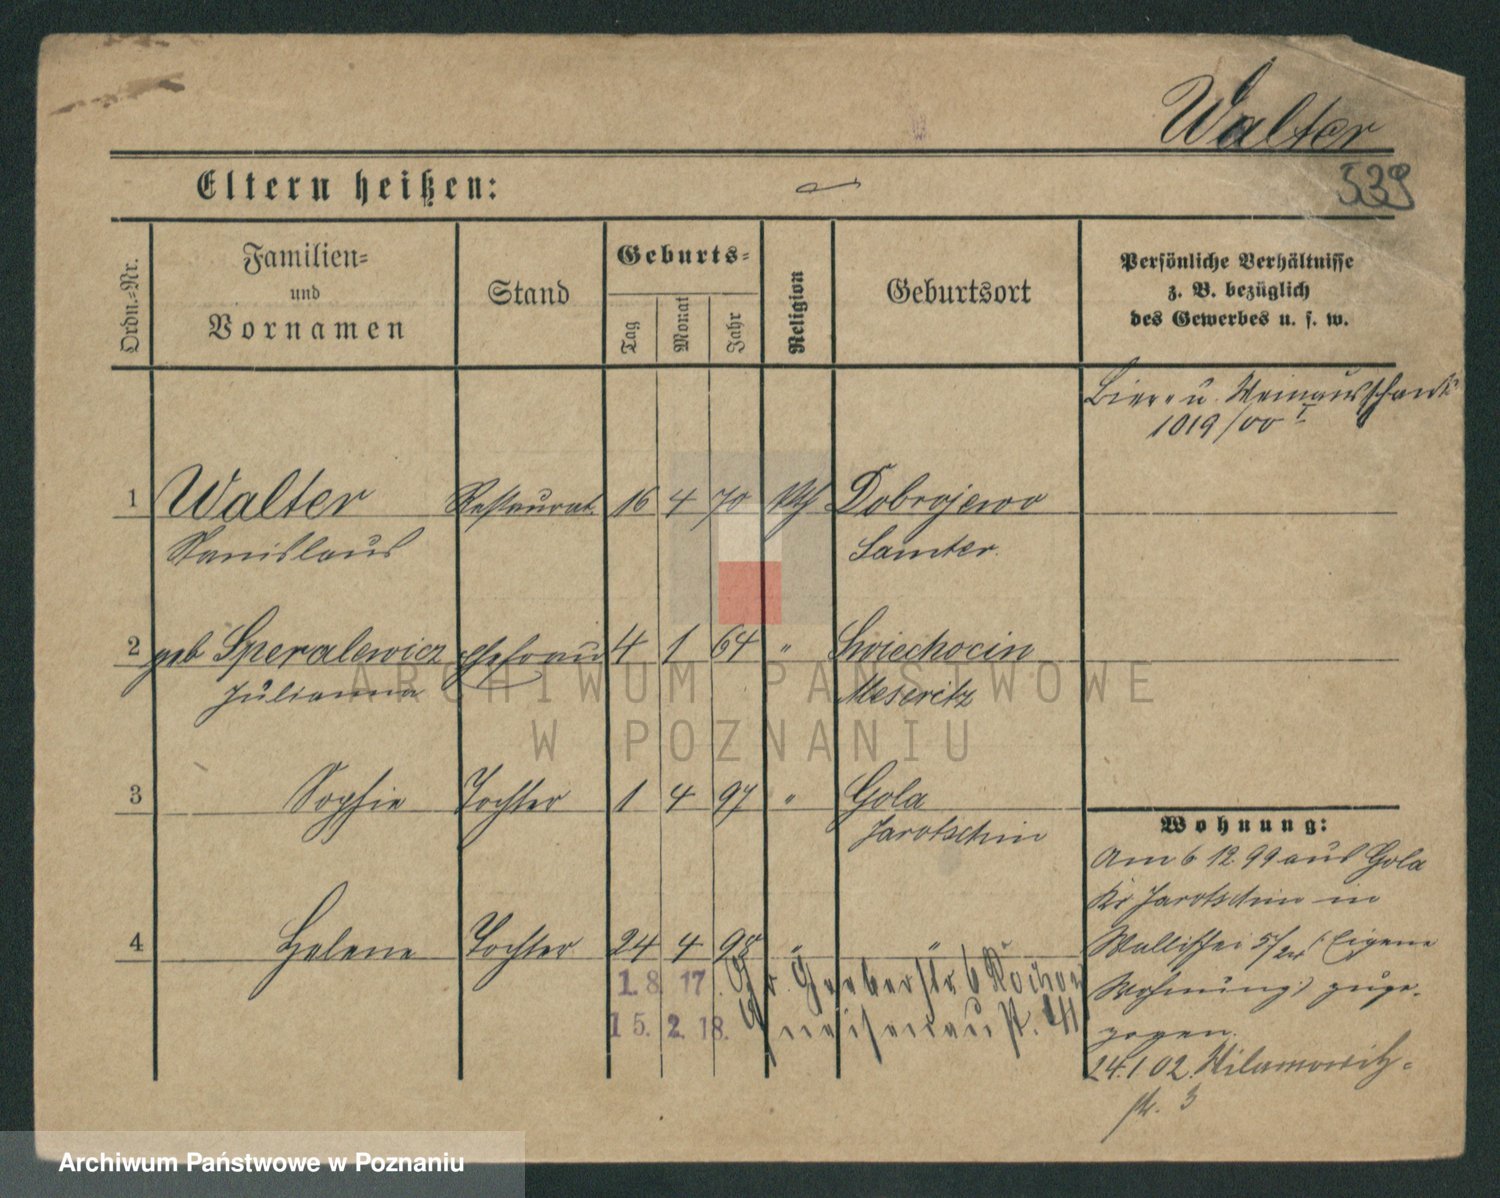 Walter
539
Eltern heißen:
Ordn.-Nr.
Familien-
und
Vornamen
Stand
Geburts-
Tag
Monat
Jahr
Religion
Geburtsort
Persönliche Verhältnisse
z. B. bezüglich
des Gewerbes u. s. w.
Bier- u. Weinausschank
1019/00 I
1 Walter Restaurat. 16 4 70 kth Dobrojewo
Stanislaus Samter.
2 geb Speralewicz Ehefrau 4 1 64 " Swiechocin
Julianna Meseritz
3 Sophie Tochter 1 4 97 " Gola
Jarotschin
4 Helene Tochter 24 4 98 " "
1. 8. 17. Gr. Gerberstr 6
15. 2. 18. Gneisenaustr.
Wohnung:
Am 6 12. 99 aus Gola
Kr Jarotschin in
Wallischei (Eigene
Wohnung) zuge-
zogen.
24.1 02. Wilamowitz-
str. 3
ARCHIWUM PAŃSTWOWE
W POZNANIU
Archiwum Państwowe w Poznaniu